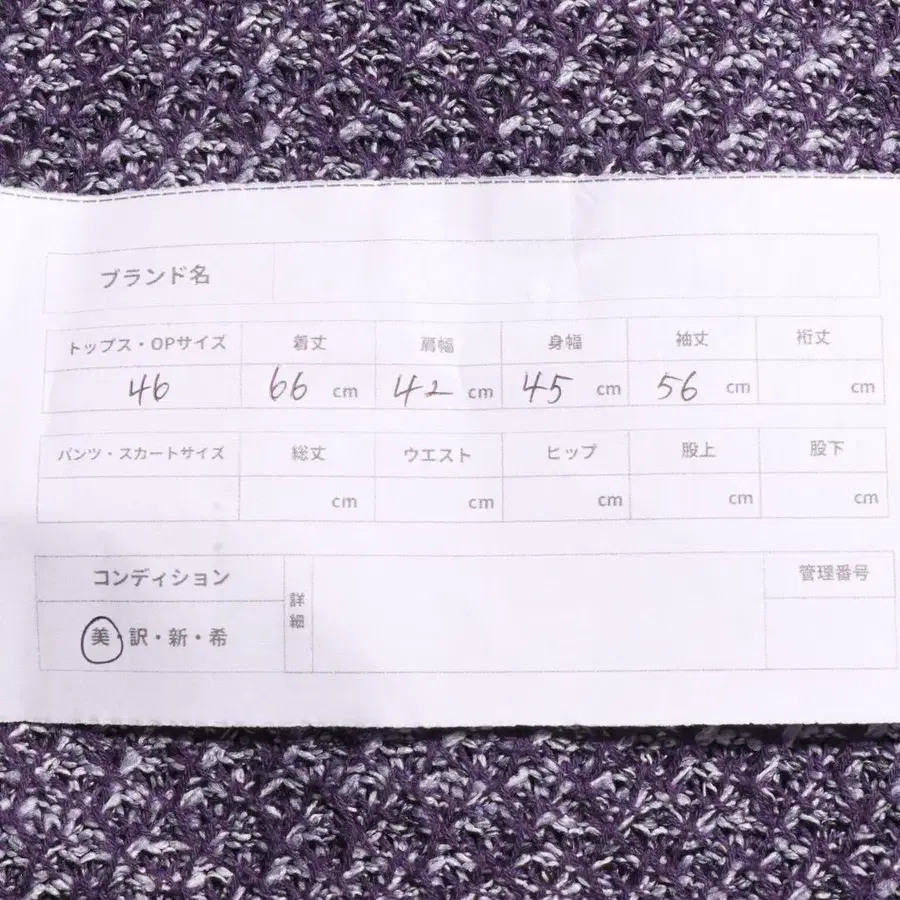 ブランド名
トップス・OPサイズ 着丈 肩幅 身幅 袖丈 裄丈
46 66 cm 42 cm 45 cm 56 cm cm
パンツ・スカートサイズ 総丈 ウエスト ヒップ 股上 股下
cm cm cm cm cm
コンディション 詳細 管理番号
美・訳・新・希